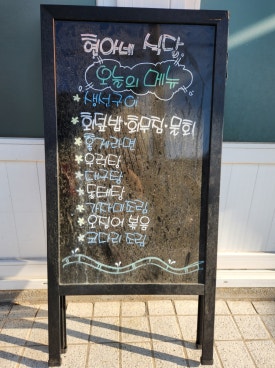 현아네 식당
오늘의 메뉴
생선구이
회덮밥·회무침·물회
홍게라면
우럭탕
대구탕
동태탕
가자미조림
오징어 볶음
코다리 조림